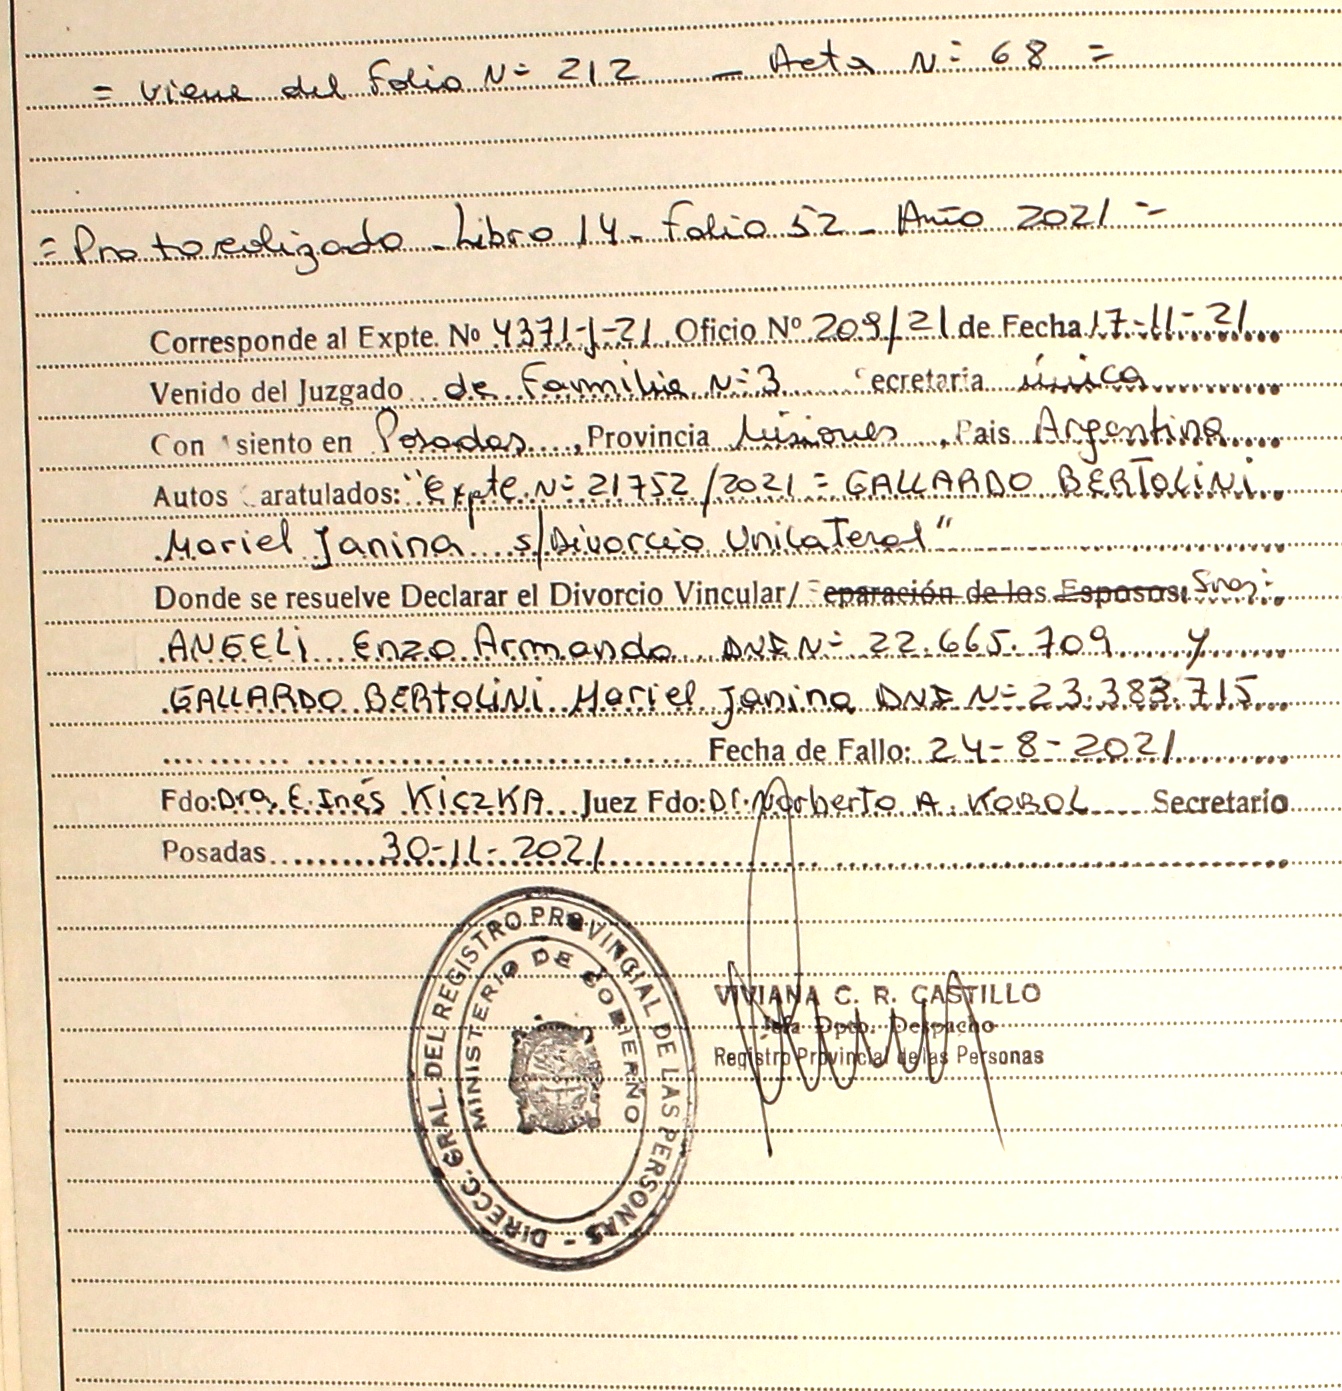 = viene del Folio Nº 212 - Acta Nº 68 =
= Protocolizado - Libro 14 - Folio 52 - Año 2021 =
Corresponde al Expte. Nº 4371-J-21 Oficio Nº 209/21 de Fecha 17-11-21
Venido del Juzgado de Familia Nº 3 Secretaria única
Con asiento en Posadas, Provincia Misiones, Pais Argentina
Autos Caratulados: "Expte Nº 21752/2021 = GALLARDO BERTOLINI
Mariel Janina s/Divorcio Unilateral"
Donde se resuelve Declarar el Divorcio Vincular/ Separación de los Esposos: Sres:
ANGELI Enzo Armando DNI Nº 22.665.709 y
GALLARDO BERTOLINI Mariel Janina DNI Nº 23.383.715
Fecha de Fallo: 24-8-2021
Fdo: Dra. E. Inés KICZKA Juez Fdo: Dr. Norberto A. KOROL Secretario
Posadas 30-11-2021
DIRECC. GRAL. DEL REGISTRO PROVINCIAL DE LAS PERSONAS -
MINISTERIO DE GOBIERNO
VIVIANA C. R. CASTILLO
Jefa Dpto. Despacho
Registro Provincial de las Personas